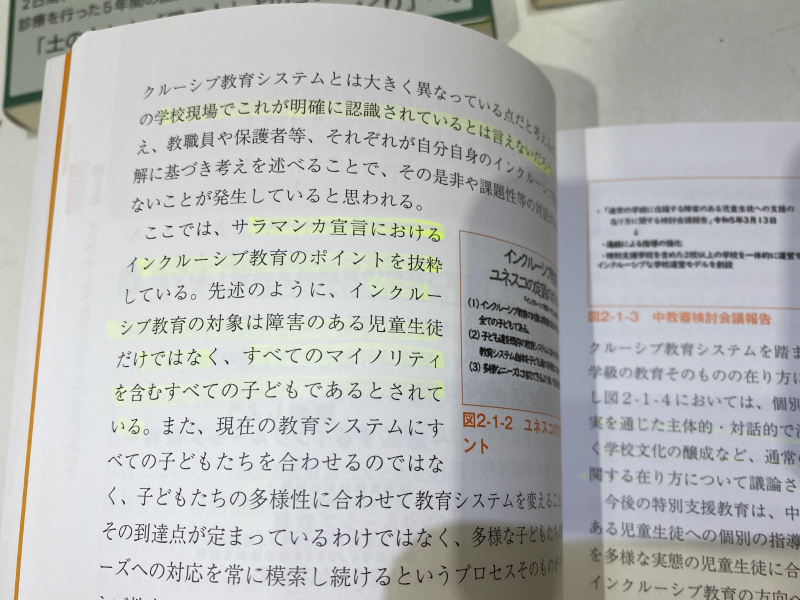 診療を行った５年間の
クルーシブ教育システムとは大きく異なっている点だと考え
の学校現場でこれが明確に認識されているとは言えないだろ
え、教職員や保護者等、それぞれが自分自身のインクルーシブ
解に基づき考えを述べることで、その是非や課題性等の対話が
ないことが発生していると思われる。
ここでは、サラマンカ宣言における
インクルーシブ教育のポイントを抜粋
している。先述のように、インクルー
シブ教育の対象は障害のある児童生徒
だけではなく、すべてのマイノリティ
を含むすべての子どもであるとされて
いる。また、現在の教育システムにす
べての子どもたちを合わせるのではな
く、子どもたちの多様性に合わせて教育システムを変えること
その到達点が定まっているわけではなく、多様な子どもたちの
ーズへの対応を常に模索し続けるというプロセスそのものが
インクルーシブ
ユネスコの定義の
(1) インクルーシブ教育の対象は
全ての子どもである。
(2) 子どもを既存の教育システムに
教育システム自体を子ども
(3) 多様なニーズに
図2-1-2 ユネスコの
ント
・「通常の学級に在籍する障害のある児童生徒への支援の
在り方に関する検討会議報告」令和5年３月１３日
↓
・通級による指導の強化
・特別支援学校を含めた２校以上の学校を一体的に運営す
インクルーシブな学校運営モデルを創設
図2-1-3 中教審検討会議報告
クルーシブ教育システムを踏ま
学級の教育そのものの在り方に
し図２-１-４においては、個別
実を通じた主体的・対話的で
く学校文化の醸成など、通常の
関する在り方について議論さ
今後の特別支援教育は、中
ある児童生徒への個別の指導
を多様な実態の児童生徒に合
インクルーシブ教育の方向へ